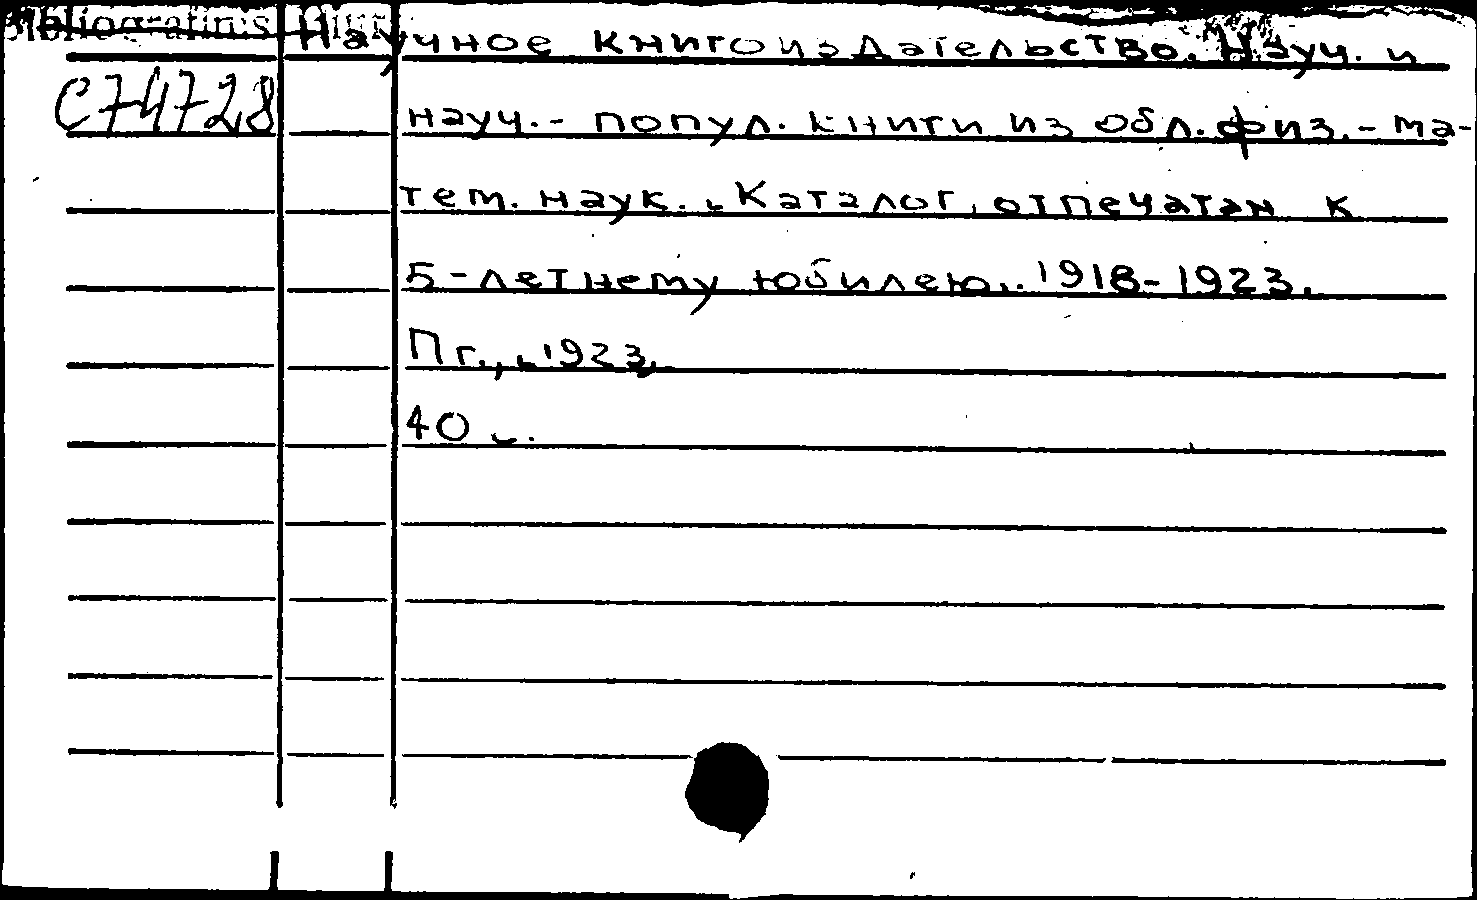 Научное книгоиздательство. Науч. и
С74728
науч.- попул. книги из обл. физ.- ма-
тем. наук. Каталог, отпечатан к
5-летнему юбилею. 1918-1923.
Пг., 1923.
40 с.